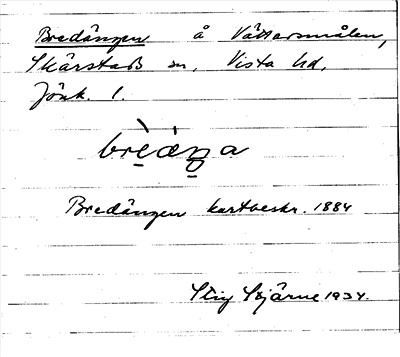 Bredängen å Vättarsmålen,
Skärstad sn, Vista hd,
Jönk. l.
Bredängen kartbeskr. 1884
Stig Stjärne 1934.